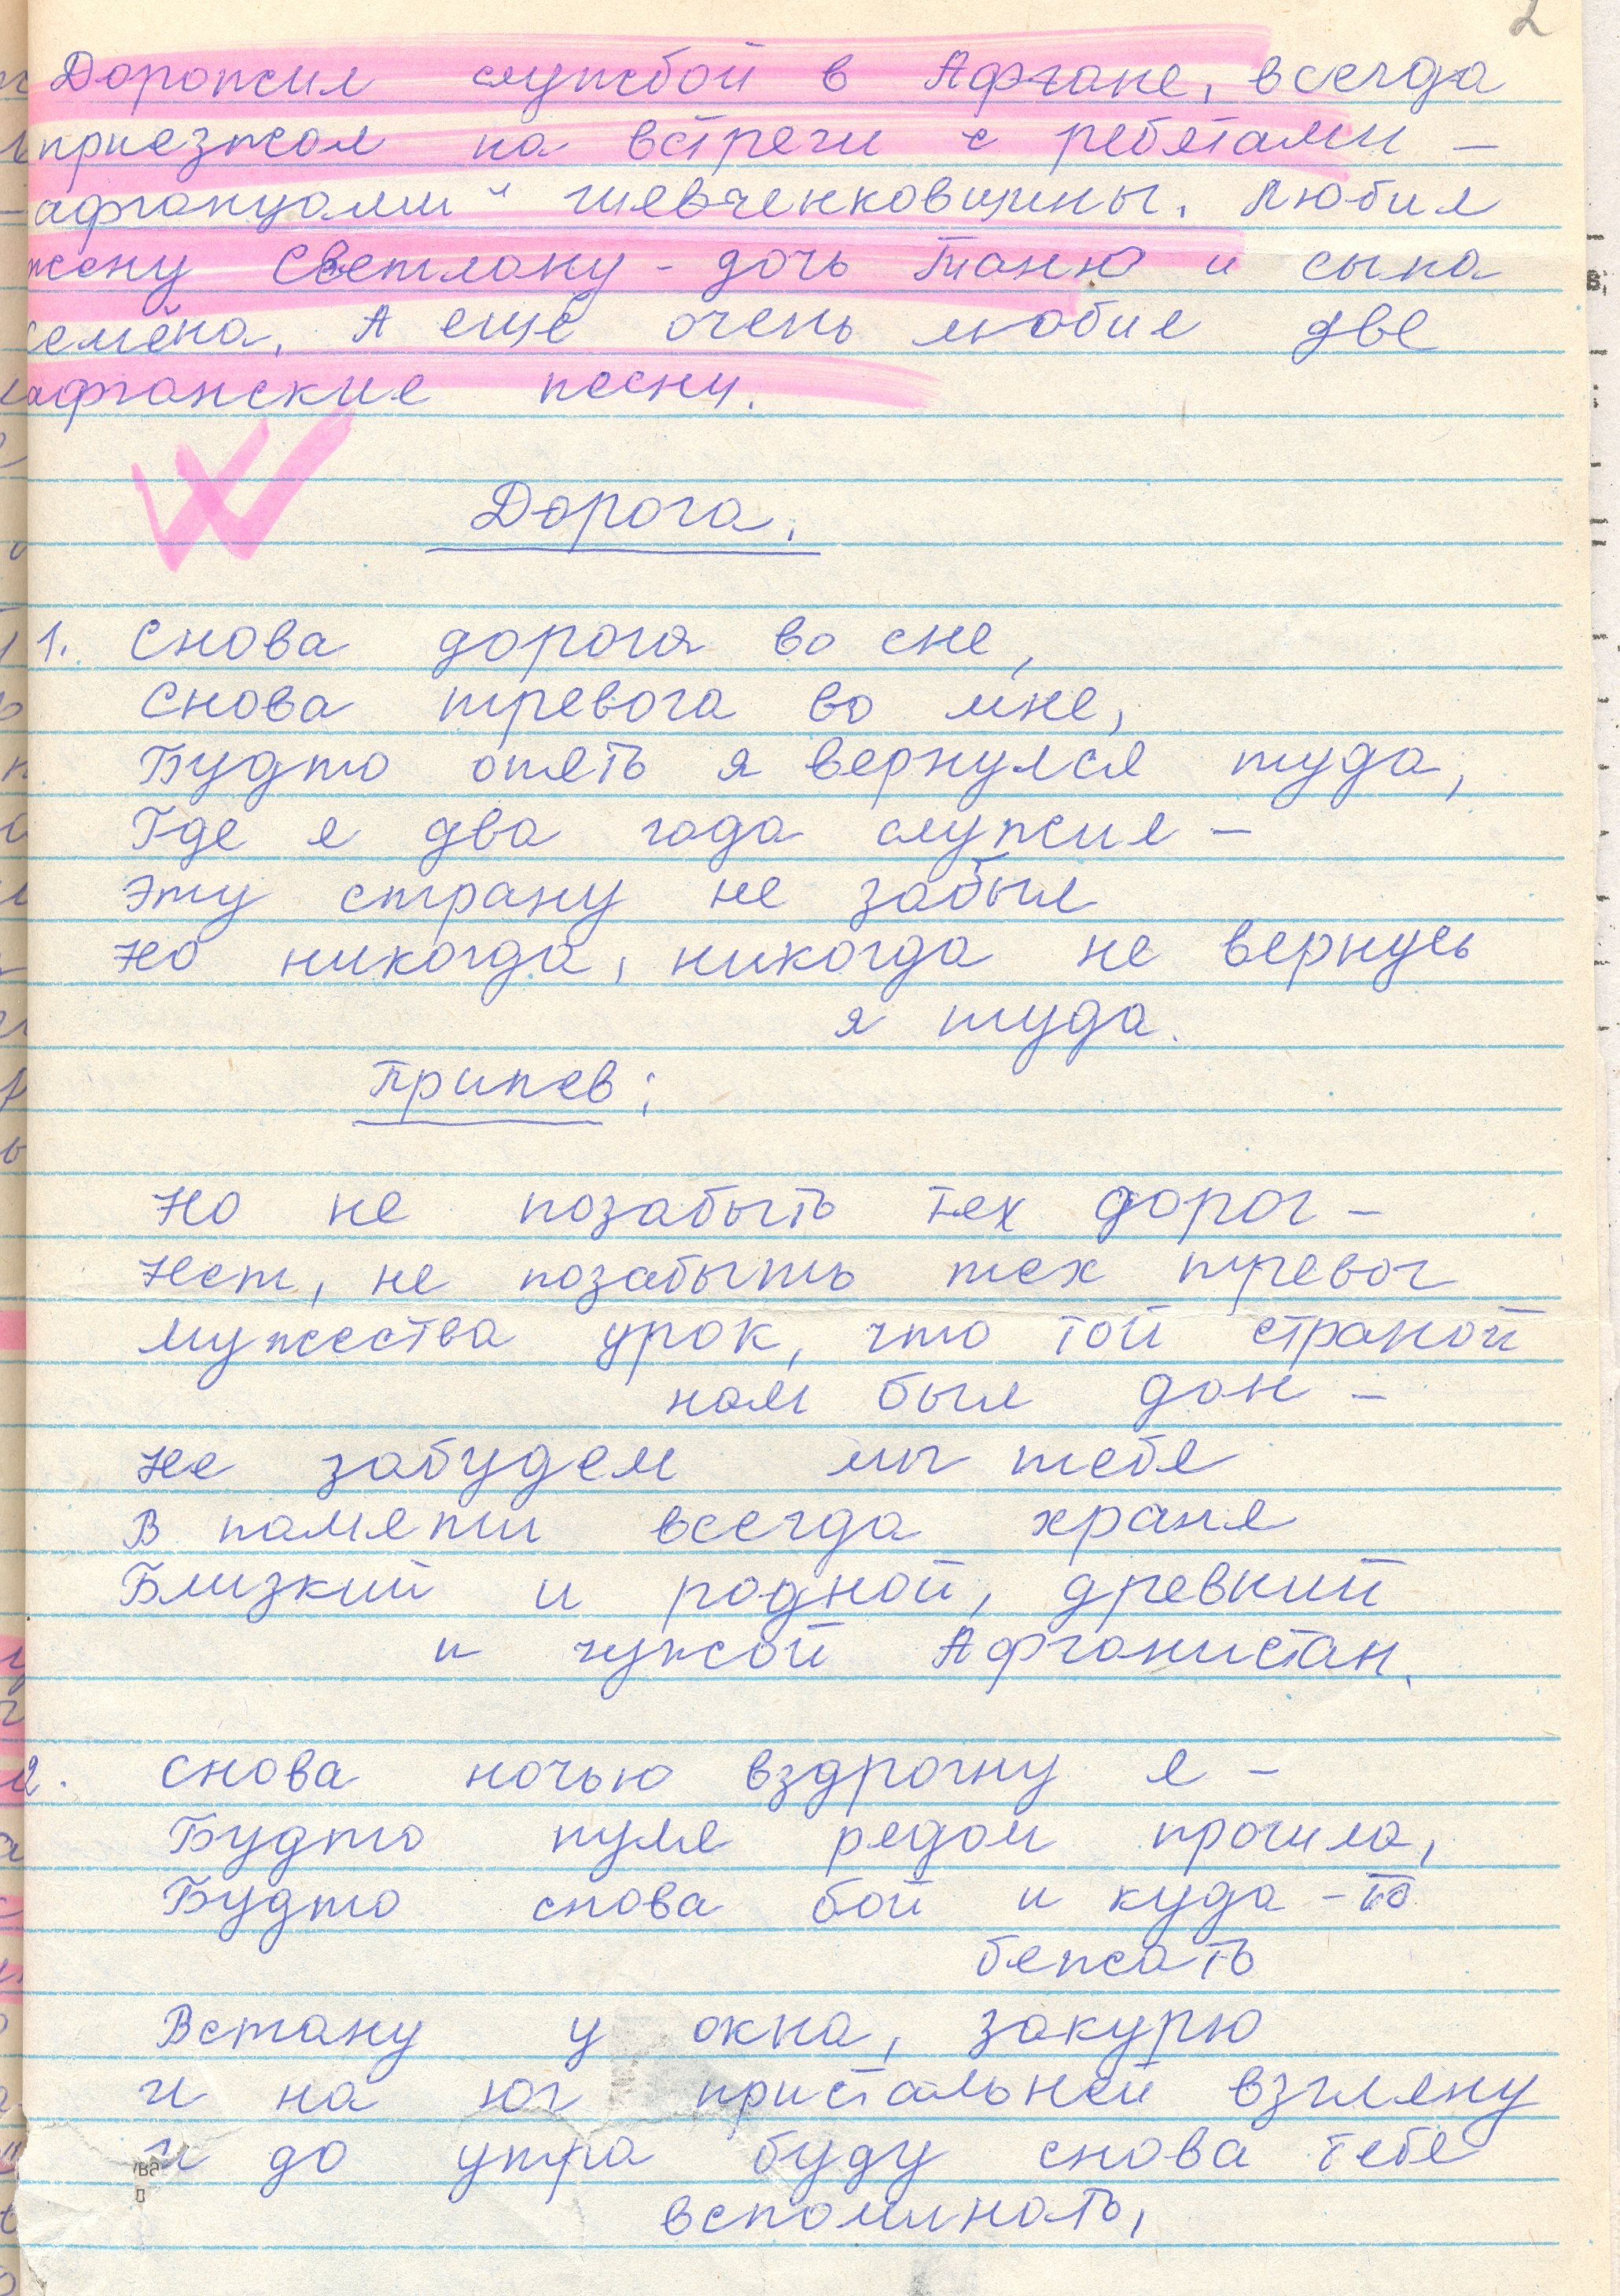 2
Дорожил службой в Афгане, всегда
приезжал на встречи с ребятами –
афганцами" шевченковщины. Любил
жену Светлану - дочь Таню и сына
Семёна. А ещё очень любил две
афганские песни.
Дорога.
1. Снова дорога во сне,
Снова тревога во мне,
Будто опять я вернулся туда,
Где я два года служил –
Эту страну не забыл
Но никогда, никогда не вернусь
я туда.
Припев:
Но не позабыть тех дорог –
Нет, не позабыть тех тревог
Мужества урок, что той страной
нам был дан –
Не забудем мы тебя
В памяти всегда храня
Близкий и родной, древний
и чужой Афганистан.
2. Снова ночью вздрогну я –
Будто пуля рядом прошла,
Будто снова бой и куда-то
бежать
Встану у окна, закурю
И на юг пристальней взгляну
И до утра буду снова тебя
вспоминать,